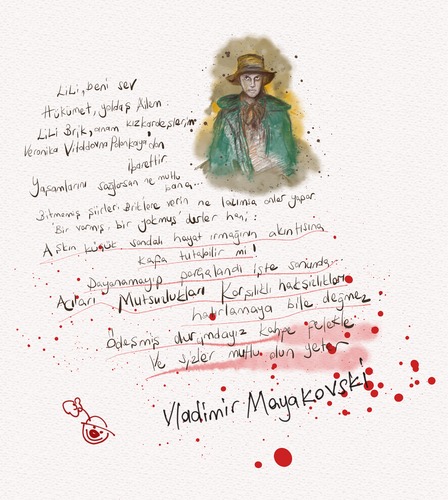 LiLi, beni sev
Hükümet, yoldaş Ailem
LiLi Brik, anam kızkardeşlerim
Veronika Vitoldovna Polonkaya'dan
ibarettir.
Yaşamlarını sağlarsan ne mutlu
bana...
Bitmemiş şiirleri Briklere verin ne lazımsa onlar yapar
'Bir varmış, bir yokmuş' derler hani:
Aşkın küçük sandalı hayat ırmağının akıntısına
kafa tutabilir mi!
Dayanamayıp parçalandı işte sonunda...
Acıları Mutsuzlukları Karşılıklı haksızlıkları
hatırlamaya bile değmez
Ödeşmiş durumdayız kahpe felekle
Ve sizler mutlu olun yeter
Vladimir Mayakovski